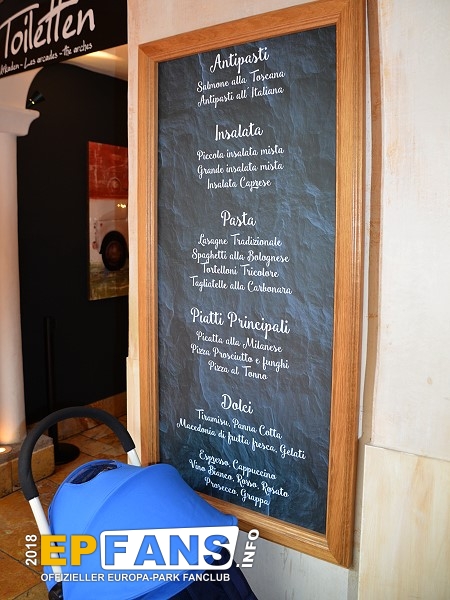 Toiletten
Arkaden - Las arcades - the arches
Antipasti
Salmone alla Toscana
Antipasti all' Italiana
Insalata
Piccola insalata mista
Grande insalata mista
Insalata Caprese
Pasta
Lasagne Tradizionale
Spaghetti alla Bolognese
Tortelloni Tricolore
Tagliatelle alla Carbonara
Piatti Principali
Picatta alla Milanese
Pizza Prosciutto e funghi
Pizza al Tonno
Dolci
Tiramisu, Panna Cotta
Macedonia di frutta fresca, Gelati
Espresso, Cappuccino
Vino Bianco, Rosso, Rosato
Prosecco, Grappa
2018 EPFANS.INFO
OFFIZIELLER EUROPA-PARK FANCLUB